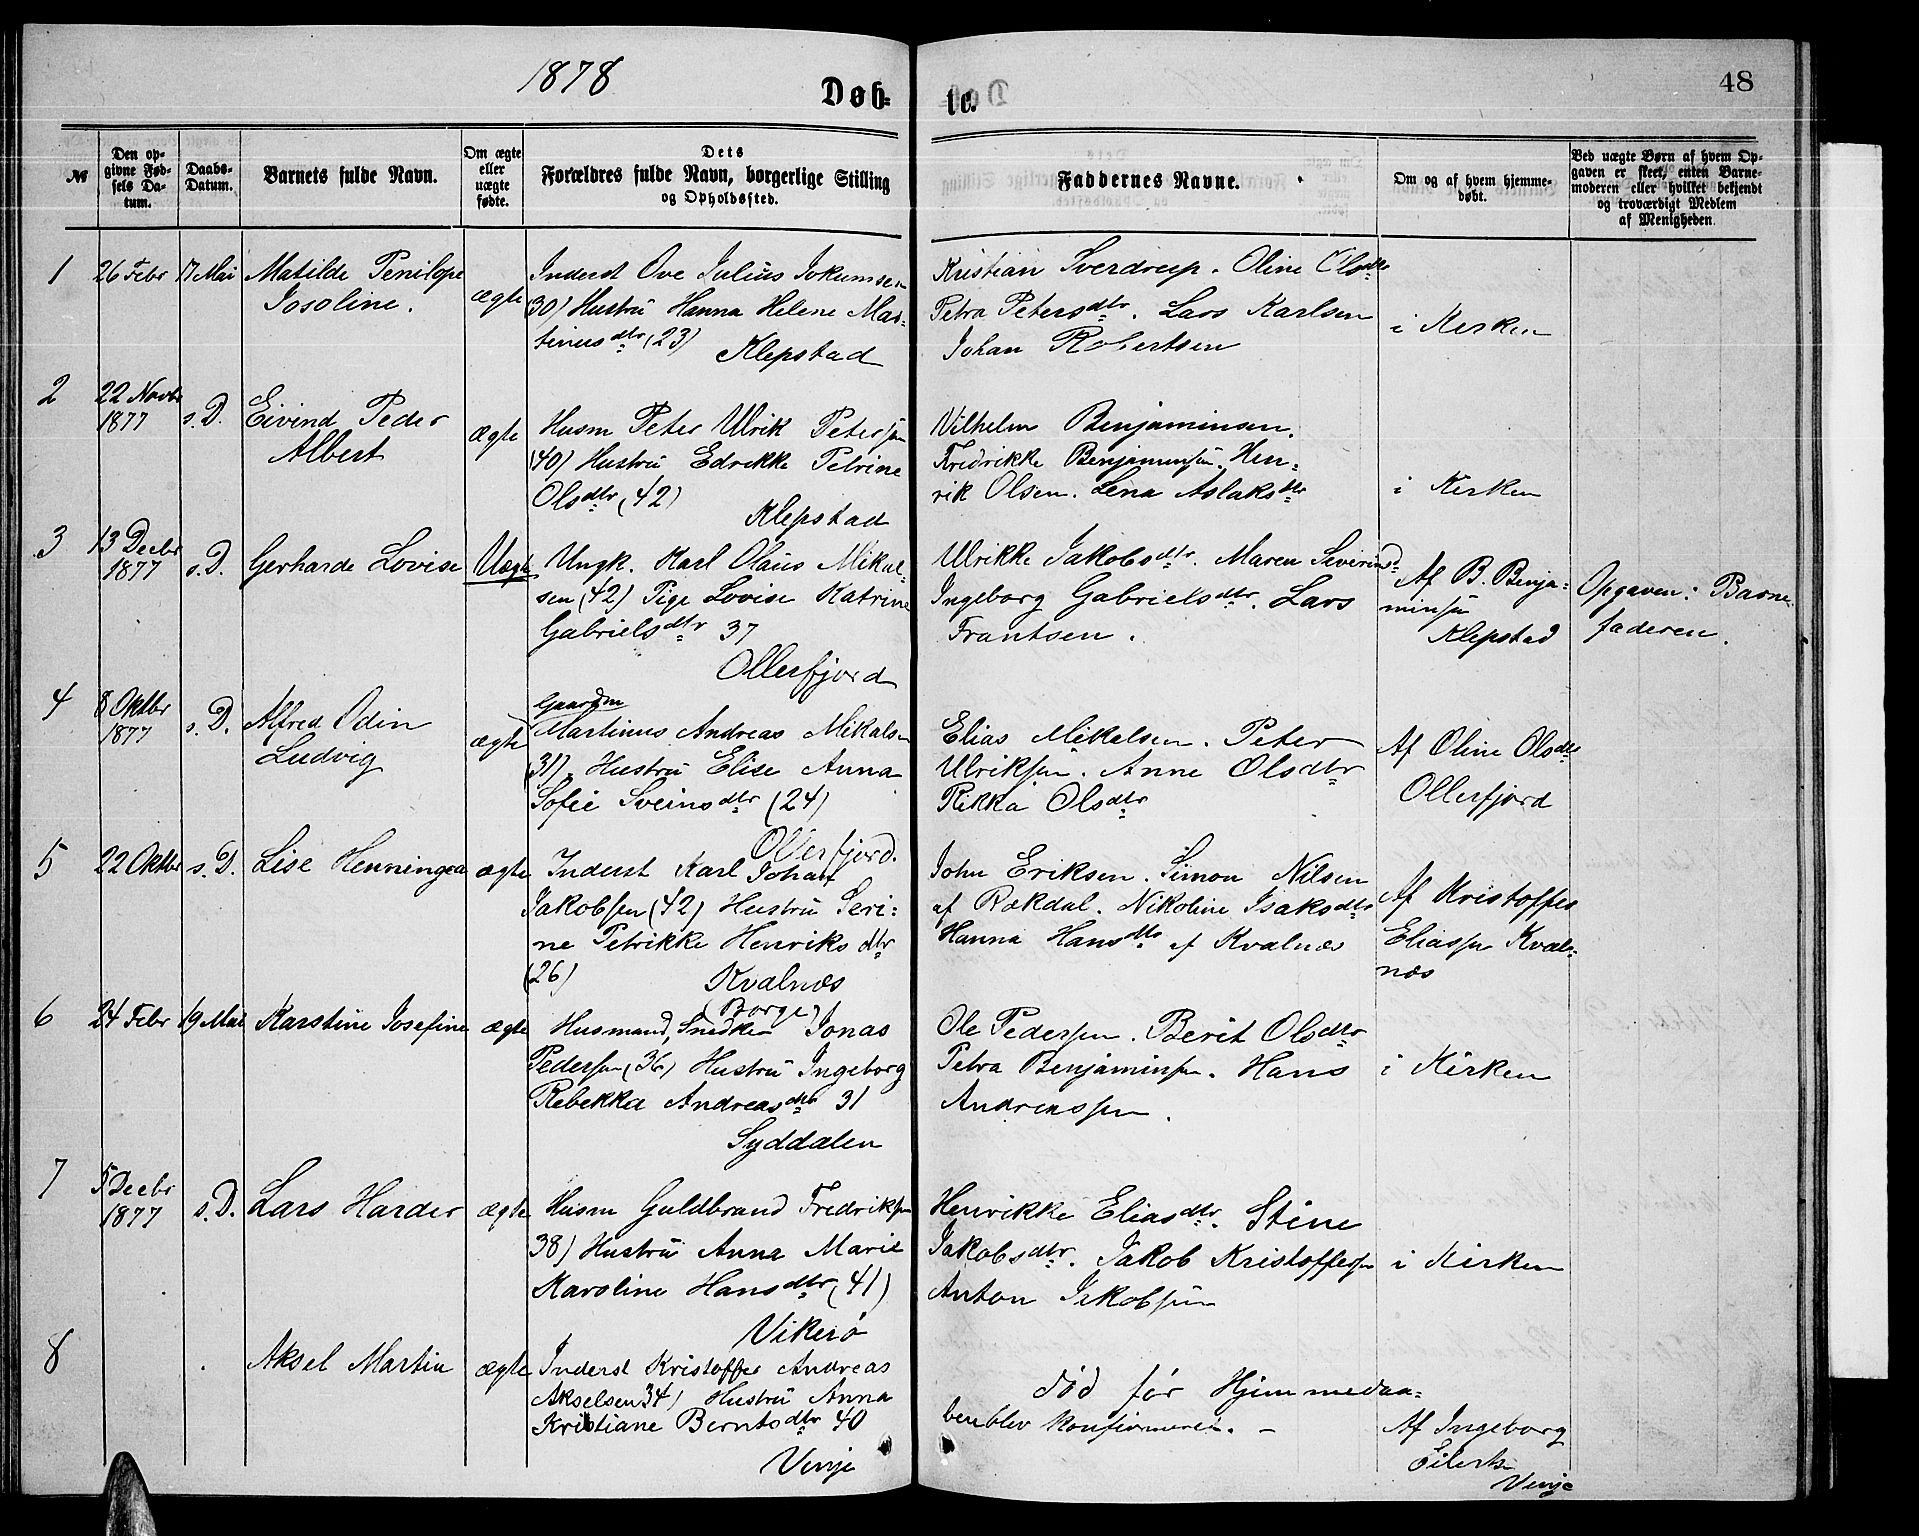 1878
Døb-
te.
48
№
Den op-
givne Fød-
sels Da-
tum.
Daabs-
Datum.
Barnets fulde Navn.
Om ægte
eller
uægte
fødte.
Dets
Forældres fulde Navn, borgerlige Stilling
og Opholdssted.
Faddernes Navne.
Om og af hvem hjemme-
døbt.
Ved uægte Børn af hvem Op-
gaven er skeet, enten Barne-
moderen eller hvilket bekjendt
og troværdigt Medlem
af Menigheden.
1
26 Febr
17 Mai
Matilde Penilope
Josoline.
ægte
Inderst Ove Julius Jokumsen
(30) Hustru Hanna Helene Mar-
tinusdtr (23)
Klepstad
Kristian Sverdrup. Oline Olsdtr
Petra Petersdtr. Lars Karlsen
Johan Robertsen
i Kirken
2
22 Novbr
1877
s. D.
Eivind Peder
Albert
ægte
Husm Peter Ulrik Petersen
(40) Hustru Edrikke Petrine
Olsdtr (42)
Klepstad
Vilhelm Benjaminsen.
Fredrikke Benjaminsen. Hen-
rik Olsen. Lena Aslaksdtr
i Kirken
3
13 Decbr
1877
s. D.
Gerharde Lovise
Uægte
Ungk. Karl Olaus Mikal-
sen (42) Pige Lovise Katrine
Gabrielsdtr 37
Ollerfjord
Ulrikke Jakobsdtr. Maren Severinsd
Ingeborg Gabrielsdtr. Lars
Frantsen.
Af B. Benja-
minsen
Klepstad
Opgaven: Barne-
faderen.
4
8 Oktbr
1877
s. D.
Alfred Odin
Ludvig
ægte
Gaardm
Martinus Andreas Mikalsen
(31), Hustru Elise Anna
Sofie Sveinsdtr (24)
Ollerfjord.
Elias Mikelsen. Peter
Ulriksen. Anne Olsdtr
Rikka Olsdtr
Af Oline Olsdtr
Ollerfjord
5
22 Oktbr
s. D.
Lise Henningea
ægte
Inderst Karl Johan
Jakobsen (42) Hustru Seri-
ne Petrikke Henriksdtr
(26)
Kvalnæs
(Borge)
John Eriksen. Simon Nilsen
af Røkdal. Nikoline Isaksdtr
Hanna Hansdtr af Kvalnæs
Af Kristoffer
Eliassen Kval-
næs
6
24 Febr
19 Mai
Karstine Josefine
ægte
Husmand, Snedker Jonas
Pedersen (36) Hustru Ingeborg
Rebekka Andreasdtr 31
Syddalen
Ole Pedersen. Berit Olsdtr
Petra Benjaminsen. Hans
Andreassen.
i Kirken
7
5 Decbr
1877
s. D.
Lars Harder
ægte
Husm Guldbrand Fredriksen
38) Hustru Anna Marie
Karoline Hansdtr (41)
Vikerø
Henrikke Eliasdtr. Stine
Jakobsdtr. Jakob Kristoffersen
Anton Jakobsen
i Kirken
8
Aksel Martin
ægte
Inderst Kristoffer Andreas
Akselsen 34) Hustru Anna
Kristiane Berntsdtr 40
Vinje
død før Hjemmedaa-
ben blev konfirmeret. –
Af Ingeborg
Eilerts
Vinje